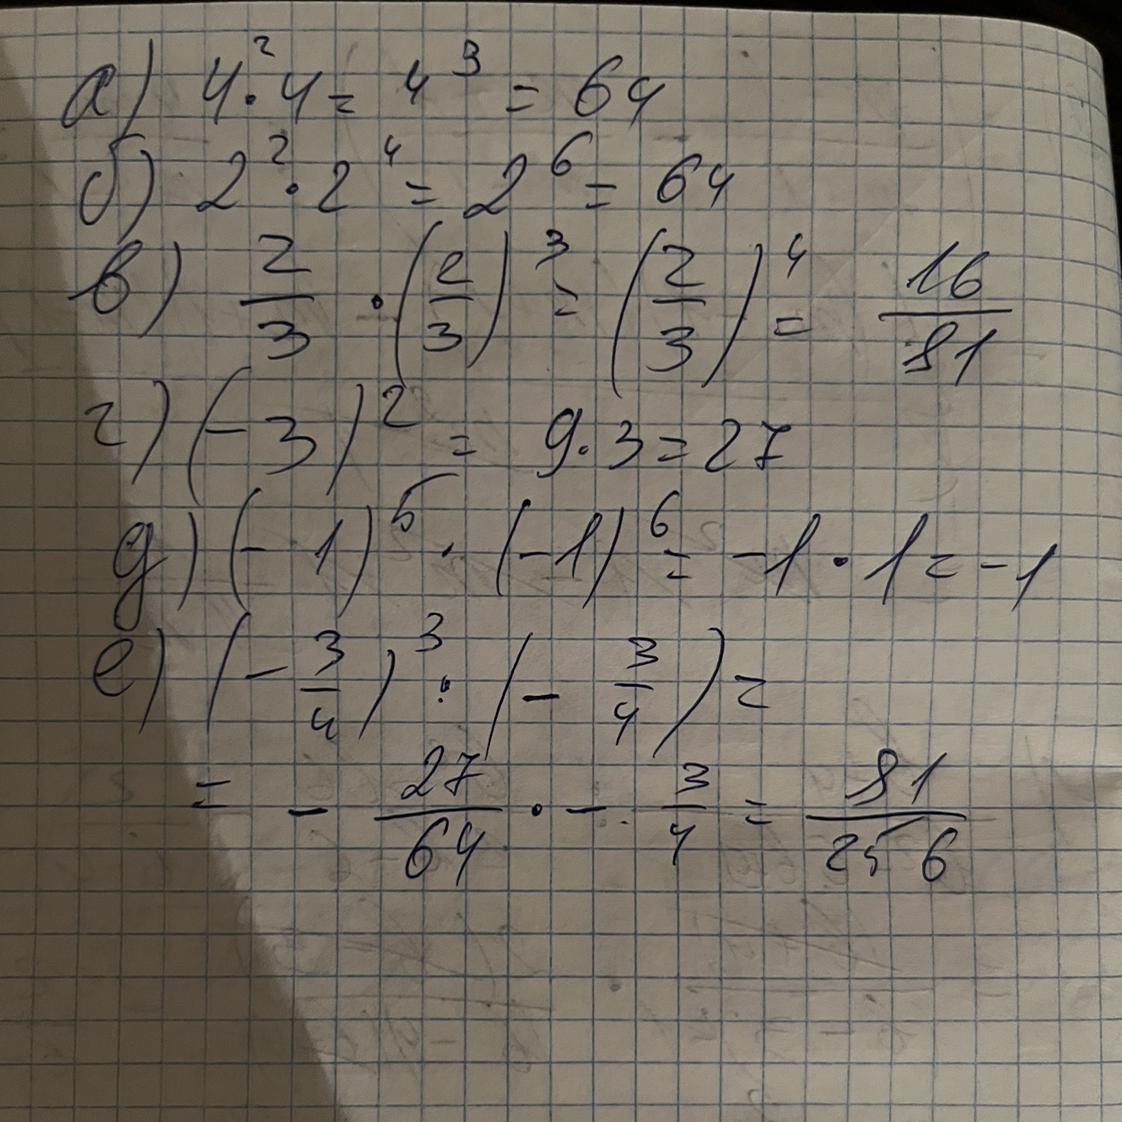 а) 4² · 4 = 4³ = 64
б) 2² · 2⁴ = 2⁶ = 64
в) 2/3 · (2/3)³ = (2/3)⁴ = 16/81
г) (-3)² = 9 · 3 = 27
д) (-1)⁵ · (-1)⁶ = -1 · 1 = -1
е) (-3/4)³ · (-3/4) =
= -27/64 · -3/4 = 81/256